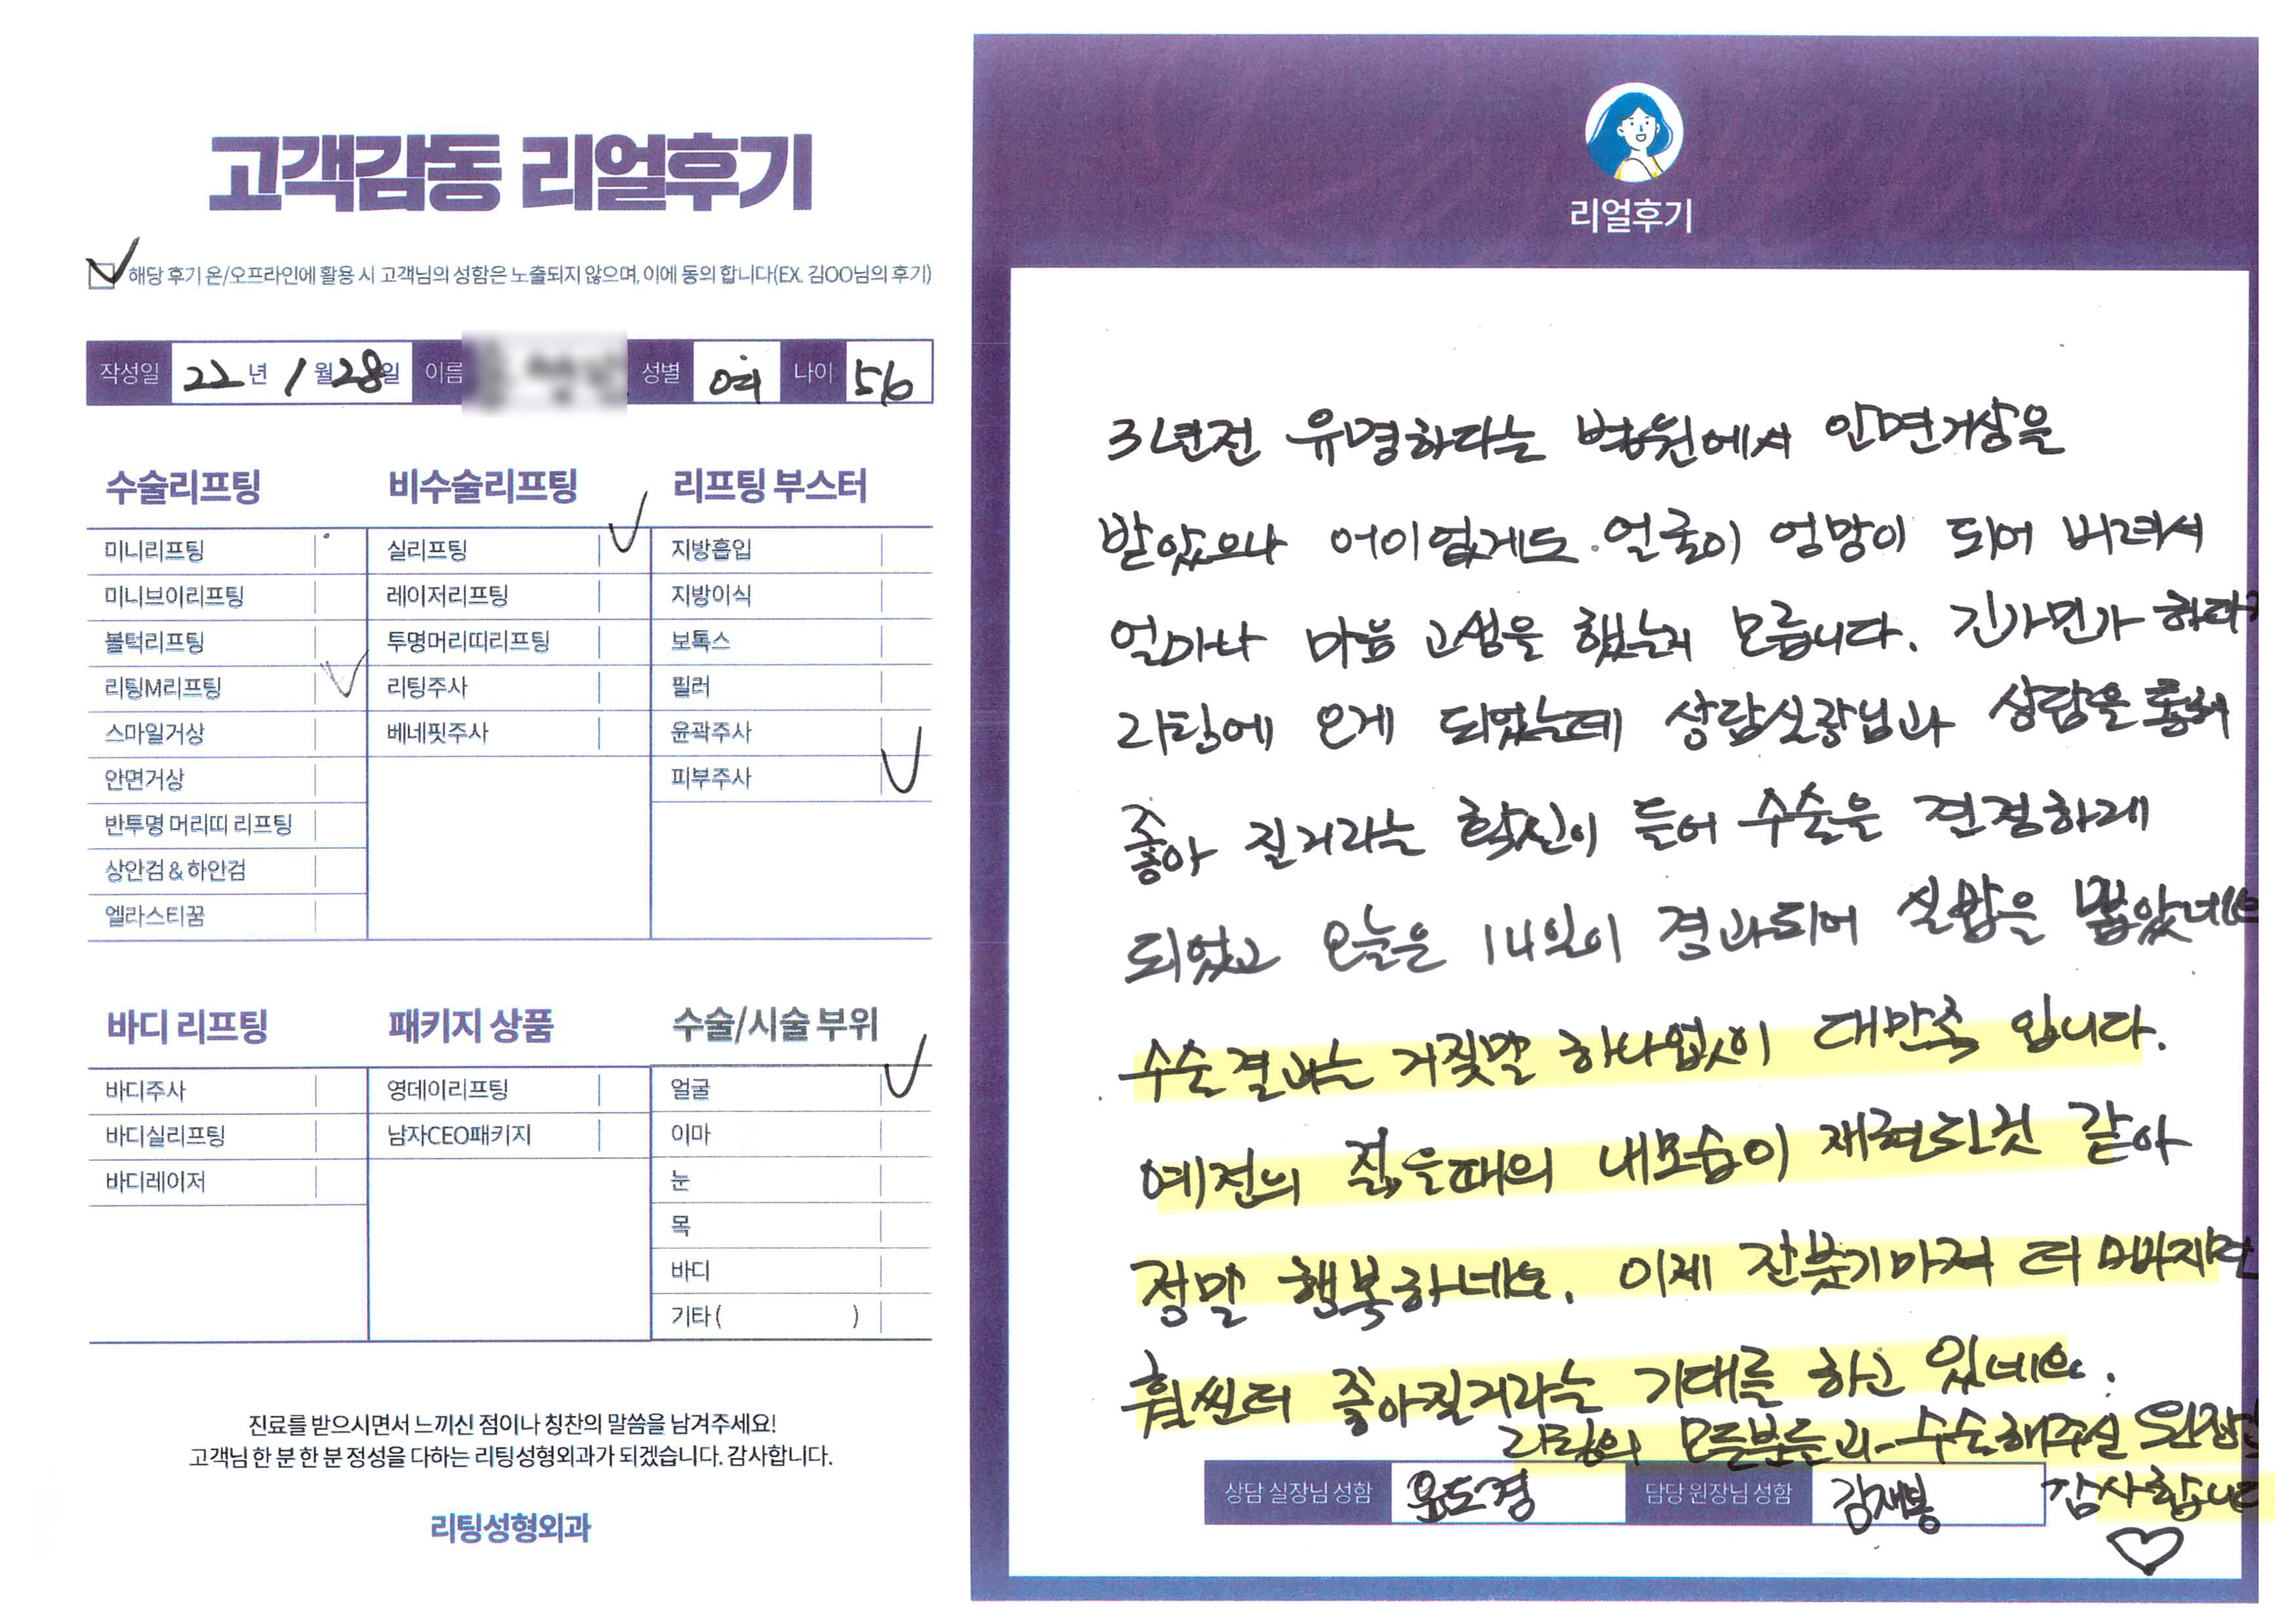 고객감동 리얼후기
해당 후기 온/오프라인에 활용 시 고객님의 성함은 노출되지 않으며, 이에 동의 합니다(EX. 김OO님의 후기)
작성일 22년 1월 28일 이름 성별 여 나이 56
수술리프팅
미니리프팅
미니브이리프팅
볼턱리프팅
리팅M리프팅
스마일거상
안면거상
반투명 머리띠 리프팅
상안검 & 하안검
엘라스티꿈
비수술리프팅
실리프팅
레이저리프팅
투명머리띠리프팅
리팅주사
베네핏주사
리프팅 부스터
지방흡입
지방이식
보톡스
필러
윤곽주사
피부주사
바디 리프팅
바디주사
바디실리프팅
바디레이저
패키지 상품
영데이리프팅
남자CEO패키지
수술/시술 부위
얼굴
이마
눈
목
바디
기타 ( )
진료를 받으시면서 느끼신 점이나 칭찬의 말씀을 남겨주세요!
고객님 한 분 한 분 정성을 다하는 리팅성형외과가 되겠습니다. 감사합니다.
리팅성형외과
리얼후기
3년전 유명하다는 병원에서 안면거상을
받았으나 어이없게도 얼굴이 엉망이 되어 버려서
얼마나 마음 고생을 했는지 모릅니다. 긴가민가 하다가
리팅에 오게 되었는데 상담실장님과 상담을 통해
좋아 질거라는 확신이 들어 수술을 결정하게
되었고 오늘은 14일이 경과되어 실밥을 뽑았네요
수술결과는 거짓말 하나없이 대만족 입니다.
예전의 젊을때의 내모습이 재현된것 같아
정말 행복하네요. 이제 잔붓기마저 더 빠지면
훨씬더 좋아질거라는 기대를 하고 있네요.
리팅의 모든분들과 수술해주신 원장님
감사합니다
상담 실장님 성함 윤도경 담당 원장님 성함 김재봉